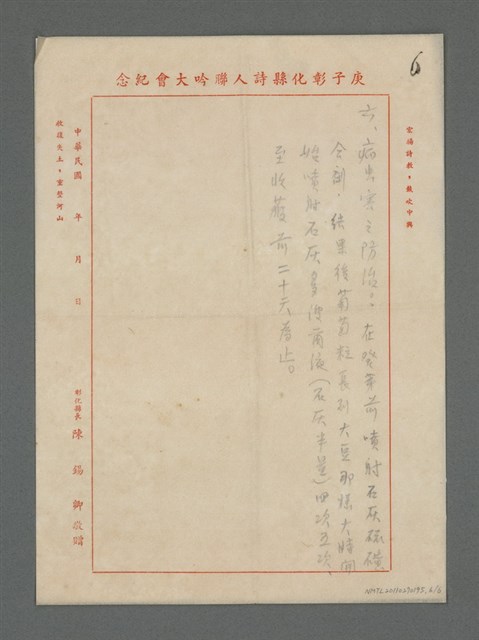 庚子彰化縣詩人聯吟大會紀念
6
宣揚詩教，鼓吹中興
六、病虫害之防治：在發芽前噴射石灰硫磺
合劑，結果後葡萄粒長到大豆那樣大時開
始噴射石灰多波爾液（石灰半量）四次五次、
至收穫前二十天為止。
中華民國　年　月　日
彰化縣長　陳錫卿敬贈
效忠民主，重整河山
NMTL20110270195, 6/6